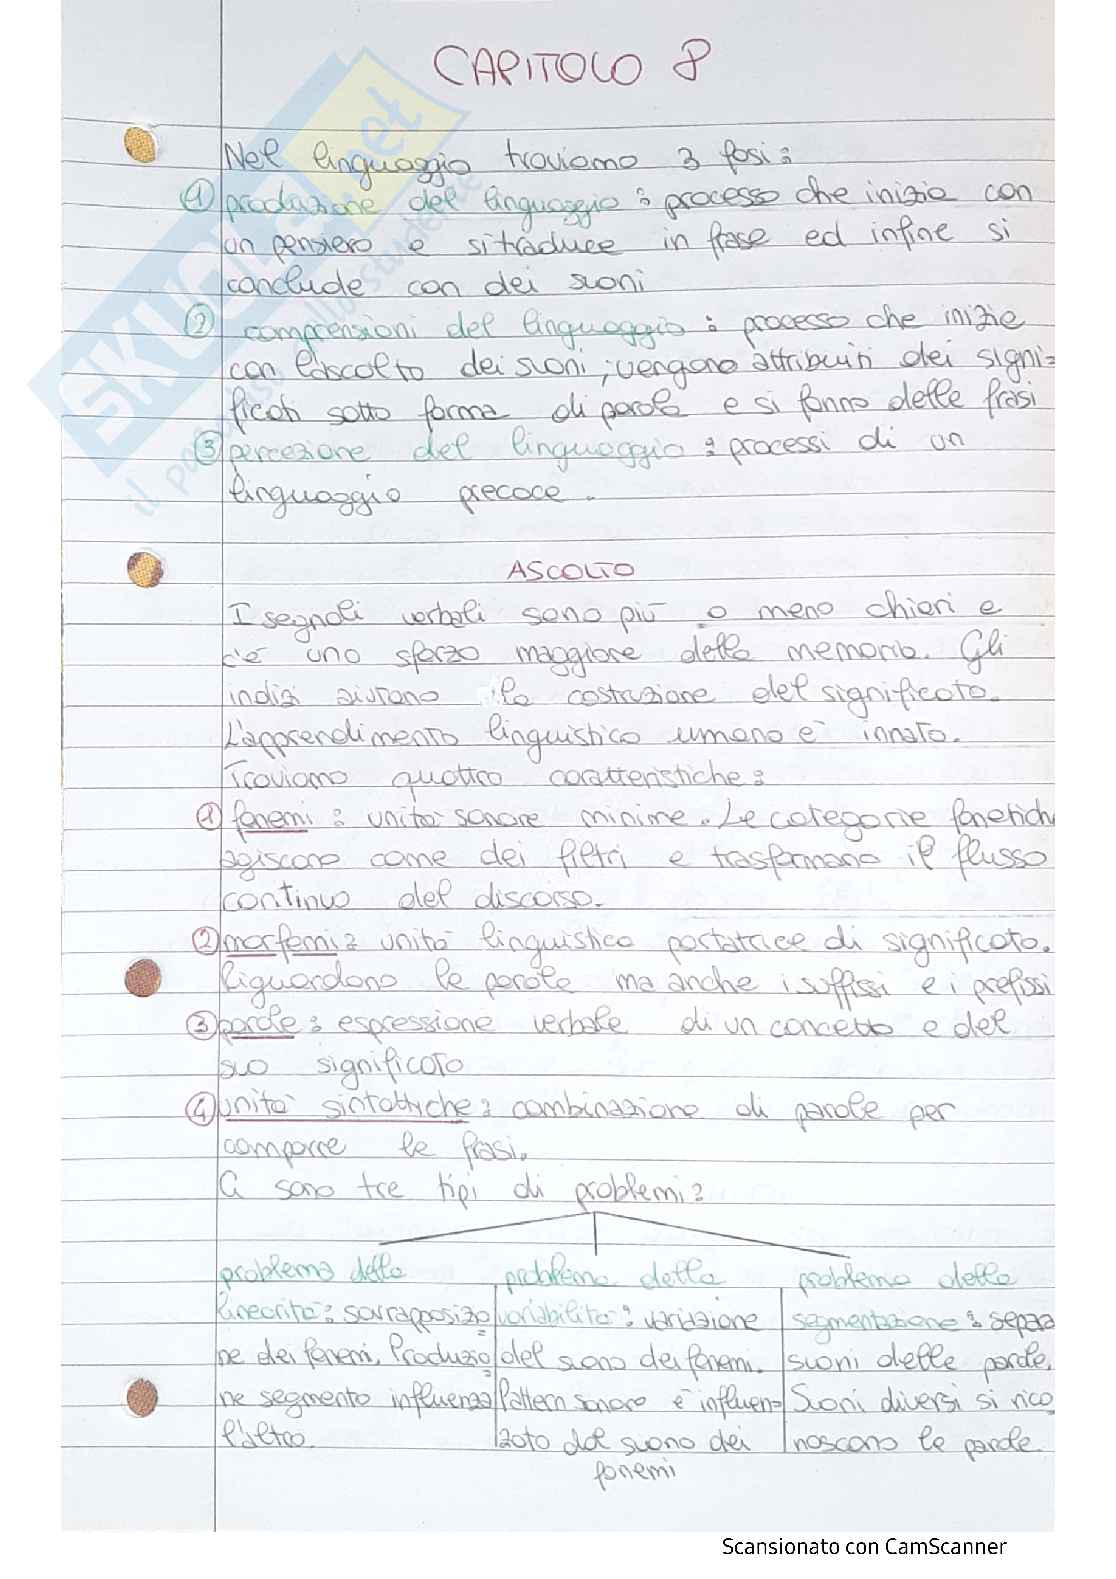 CAPITOLO 8
Nel linguaggio troviamo 3 fasi:
1 produzione del linguaggio: processo che inizia con
un pensiero e si traduce in frase ed infine si
conclude con dei suoni
2 comprensioni del linguaggio: processo che inizia
con l'ascolto dei suoni; vengono attribuiti dei signi=
ficati sotto forma di parola e si fanno delle frasi
3 percezione del linguaggio: processi di un
linguaggio precoce.
ASCOLTO
I segnali verbali sono più o meno chiari e
c'è uno sforzo maggiore della memoria. Gli
indizi aiutano la costruzione del significato.
L'apprendimento linguistico umano è innato.
Troviamo quattro caratteristiche:
1 fonemi: unità sonore minime. Le categorie fonetich
agiscono come dei filtri e trasformano il flusso
continuo del discorso.
2 morfemi: unità linguistica portatrice di significato.
Riguardano le parole ma anche i suffissi e i prefissi
3 parole: espressione verbale di un concetto e del
suo significato
4 unità sintattiche: combinazione di parole per
comporre le frasi.
Ci sono tre tipi di problemi:
problema della
linearità: sovrapposizio=
ne dei fonemi. Produzio=
ne segmento influenza
l'altro.
problema della
variabilità: variazione
del suono dei fonemi.
Pattern sonoro è influen=
zato dal suono dei
fonemi
problema della
segmentazione: separa
suoni delle parole.
Suoni diversi si rico
noscono le parole.
SKUOLA.net
Scansionato con CamScanner